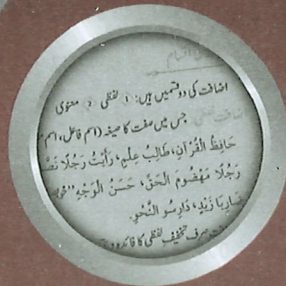 اقسام
اضافت کی دو قسمیں ہیں: ① لفظی ② معنوی
اضافت لفظی جس میں صفت کا صیغہ (اسم فاعل، اسم
حَافِظُ الْقُرْآنِ، طَالِبُ عِلْمٍ، رَأَيْتُ رَجُلًا
رَجُلًا مَهْضُومَ الْحَقِّ، حَسَنُ الْوَجْهِ
ضَارِبَا زَيْدٍ، دَارِسُو النَّحْوِ.
صرف تخفیف لفظی کا فائدہ